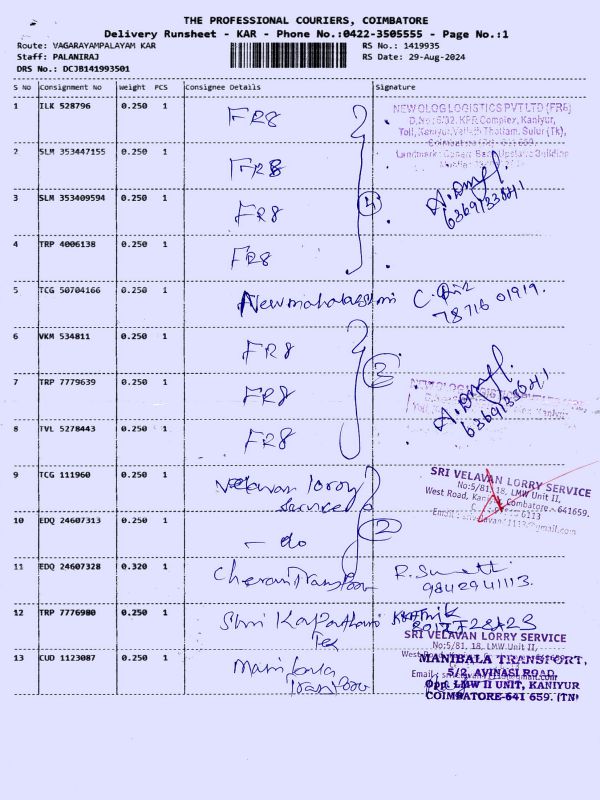 THE PROFESSIONAL COURIERS, COIMBATORE
Delivery Runsheet - KAR - Phone No.:0422-3505555 - Page No.:1
Route: VAGARAYAMPALAYAM KAR RS No.: 1419935
Staff: PALANIRAJ RS Date: 29-Aug-2024
DRS No.: DCJB141993501
S No Consignment No Weight PCS Consignee Details Signature
1 ILK 528796 0.250 1 FR8
NEW OLOG LOGISTICS PVT LTD (FR8)
D.No: 6/32, KPR Complex, Kaniyur,
2 SLM 353447155 0.250 1 FR8
3 SLM 353409594 0.250 1 FR8
4
6369133841
4 TRP 4006138 0.250 1 FR8
5 TCG 50704166 0.250 1 Newmahalakshmi
78716 01919.
6 VKM 534811 0.250 1 FR8
7 TRP 7779639 0.250 1 FR8
6369133841
8 TVL 5278443 0.250 1 FR8
9 TCG 111960 0.250 1 Velavan lorry
service
2
SRI VELAVAN LORRY SERVICE
No:5/81, 18, LMW Unit II,
West Road, Coimbatore - 641659.
10 EDQ 24607313 0.250 1 - do
11 EDQ 24607328 0.320 1 Cheran Transport
9842941113.
12 TRP 7776980 0.250 1 Shri
Tex
SRI VELAVAN LORRY SERVICE
No:5/81, 18, LMW Unit II,
13 CUD 1123087 0.250 1 Manibala
Transport
MANIBALA TRANSPORT,
5/2, AVINASI ROAD,
Opp. LMW II UNIT, KANIYUR
COIMBATORE-641 659. (TN)